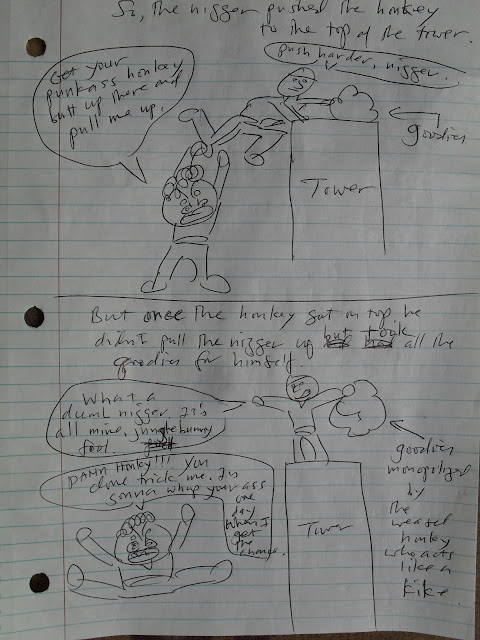 So, the nigger pushed the honkey
to the top of the tower.
push harder, nigger.
Get your
punkass honkey
butt up there and
pull me up.
goodies
Tower
But once the honkey got on top, he
didn't pull the nigger up but took all the
goodies for himself.
What a
dumb nigger. It's
all mine, junglebunny
fool.
DAMN Honky!!! You
done trick me. I's
gonna whup your ass
one
day
when I
get
the
change.
Tower
goodies
monopolized
by
the
weasel
honkey
who acts
like a
kike